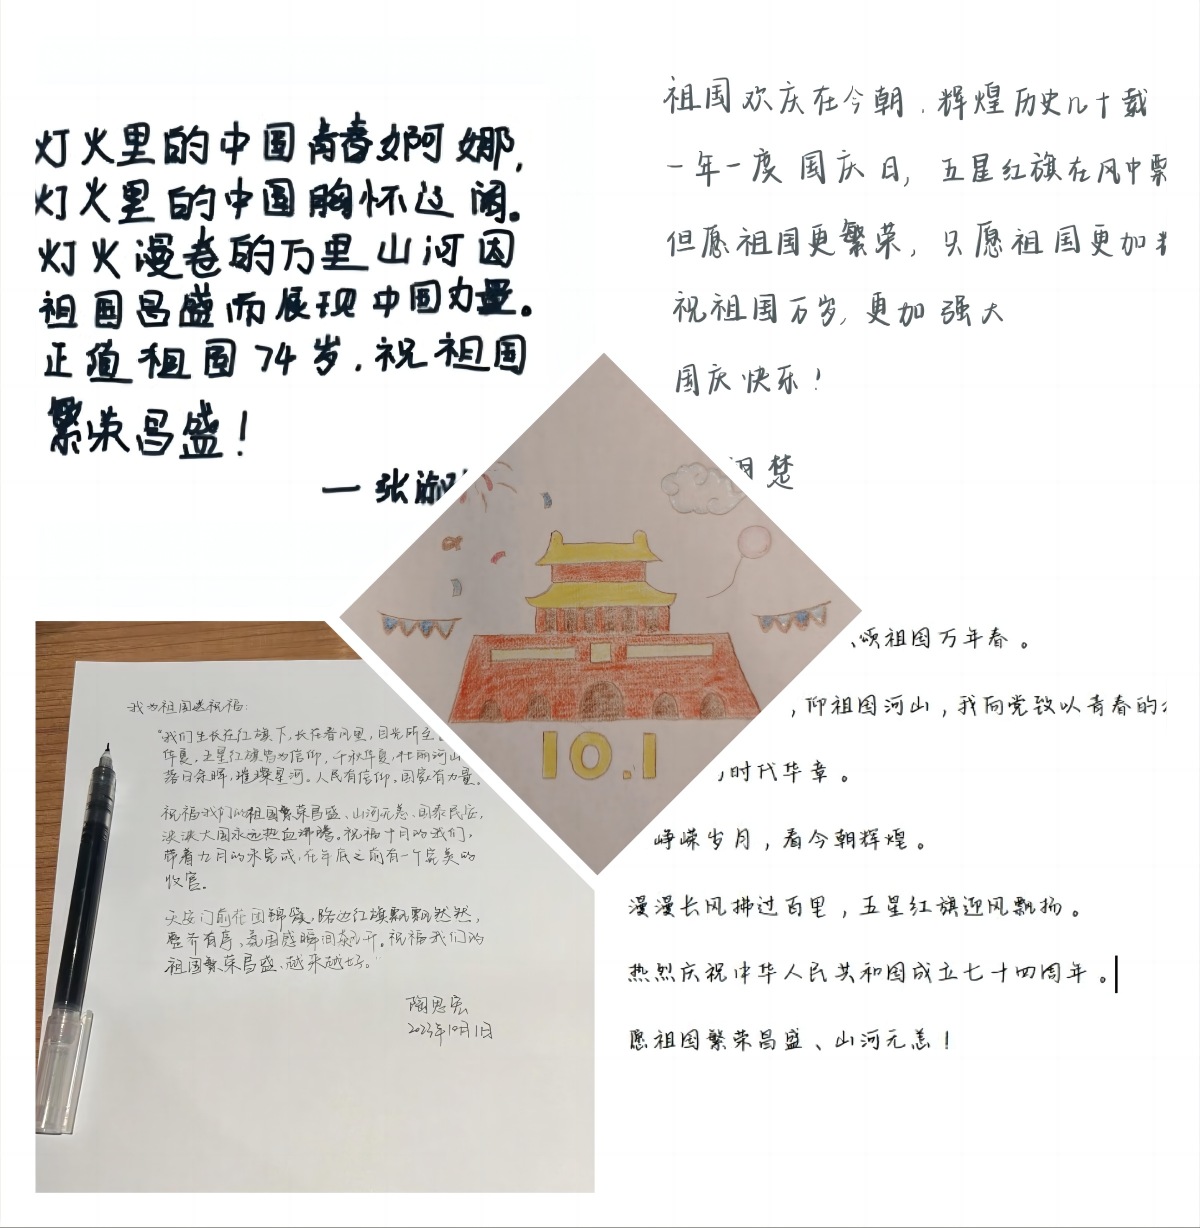 灯火里的中国青春婀娜,
灯火里的中国胸怀辽阔。
灯火漫卷的万里山河因
祖国昌盛而展现中国力量。
正值祖国74岁,祝祖国
繁荣昌盛!
—张淑
祖国欢庆在今朝.辉煌历史几十载
一年一度国庆日,五星红旗在风中飘
但愿祖国更繁荣,只愿祖国更加
祝祖国万岁,更加强大
国庆快乐!
楚
10.1
我为祖国送祝福:
"我们生长在红旗下,长在春风里,目光所至
华夏,五星红旗皆为信仰,千秋华夏,壮丽河山
落日余晖,璀璨星河。人民有信仰。国家有力量。
祝福我们的祖国繁荣昌盛、山河无恙、国泰民安,
泱泱大国永远热血沸腾。祝福十月的我们,
带着九月的未完成,在年底之前有一个完美的
收官。
天安门前花团锦簇,路边红旗飘飘然然,
整齐有序、氛围感瞬间凝开。祝福我们的
祖国繁荣昌盛、越来越好。"
陶思宏
2023年10月1日
颂祖国万年春。
,仰祖国河山,我向党致以青春的
时代华章。
峥嵘岁月,看今朝辉煌。
漫漫长风拂过百里,五星红旗迎风飘扬。
热烈庆祝中华人民共和国成立七十四周年。
愿祖国繁荣昌盛、山河无恙!